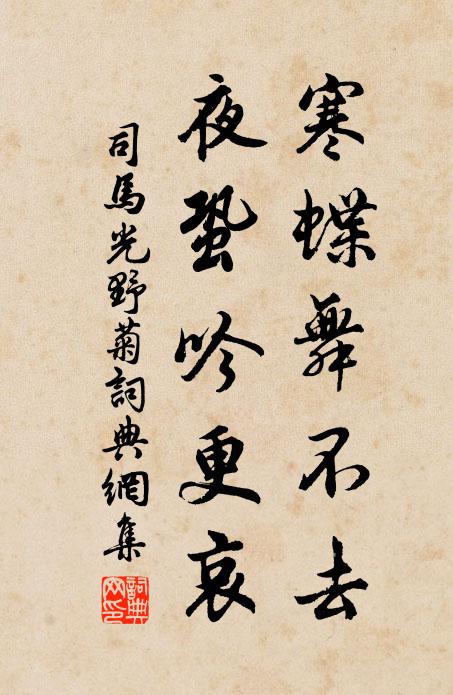 寒蝶舞不去
夜蛩吟更哀
司馬光野菊詞典網集
詞典網印